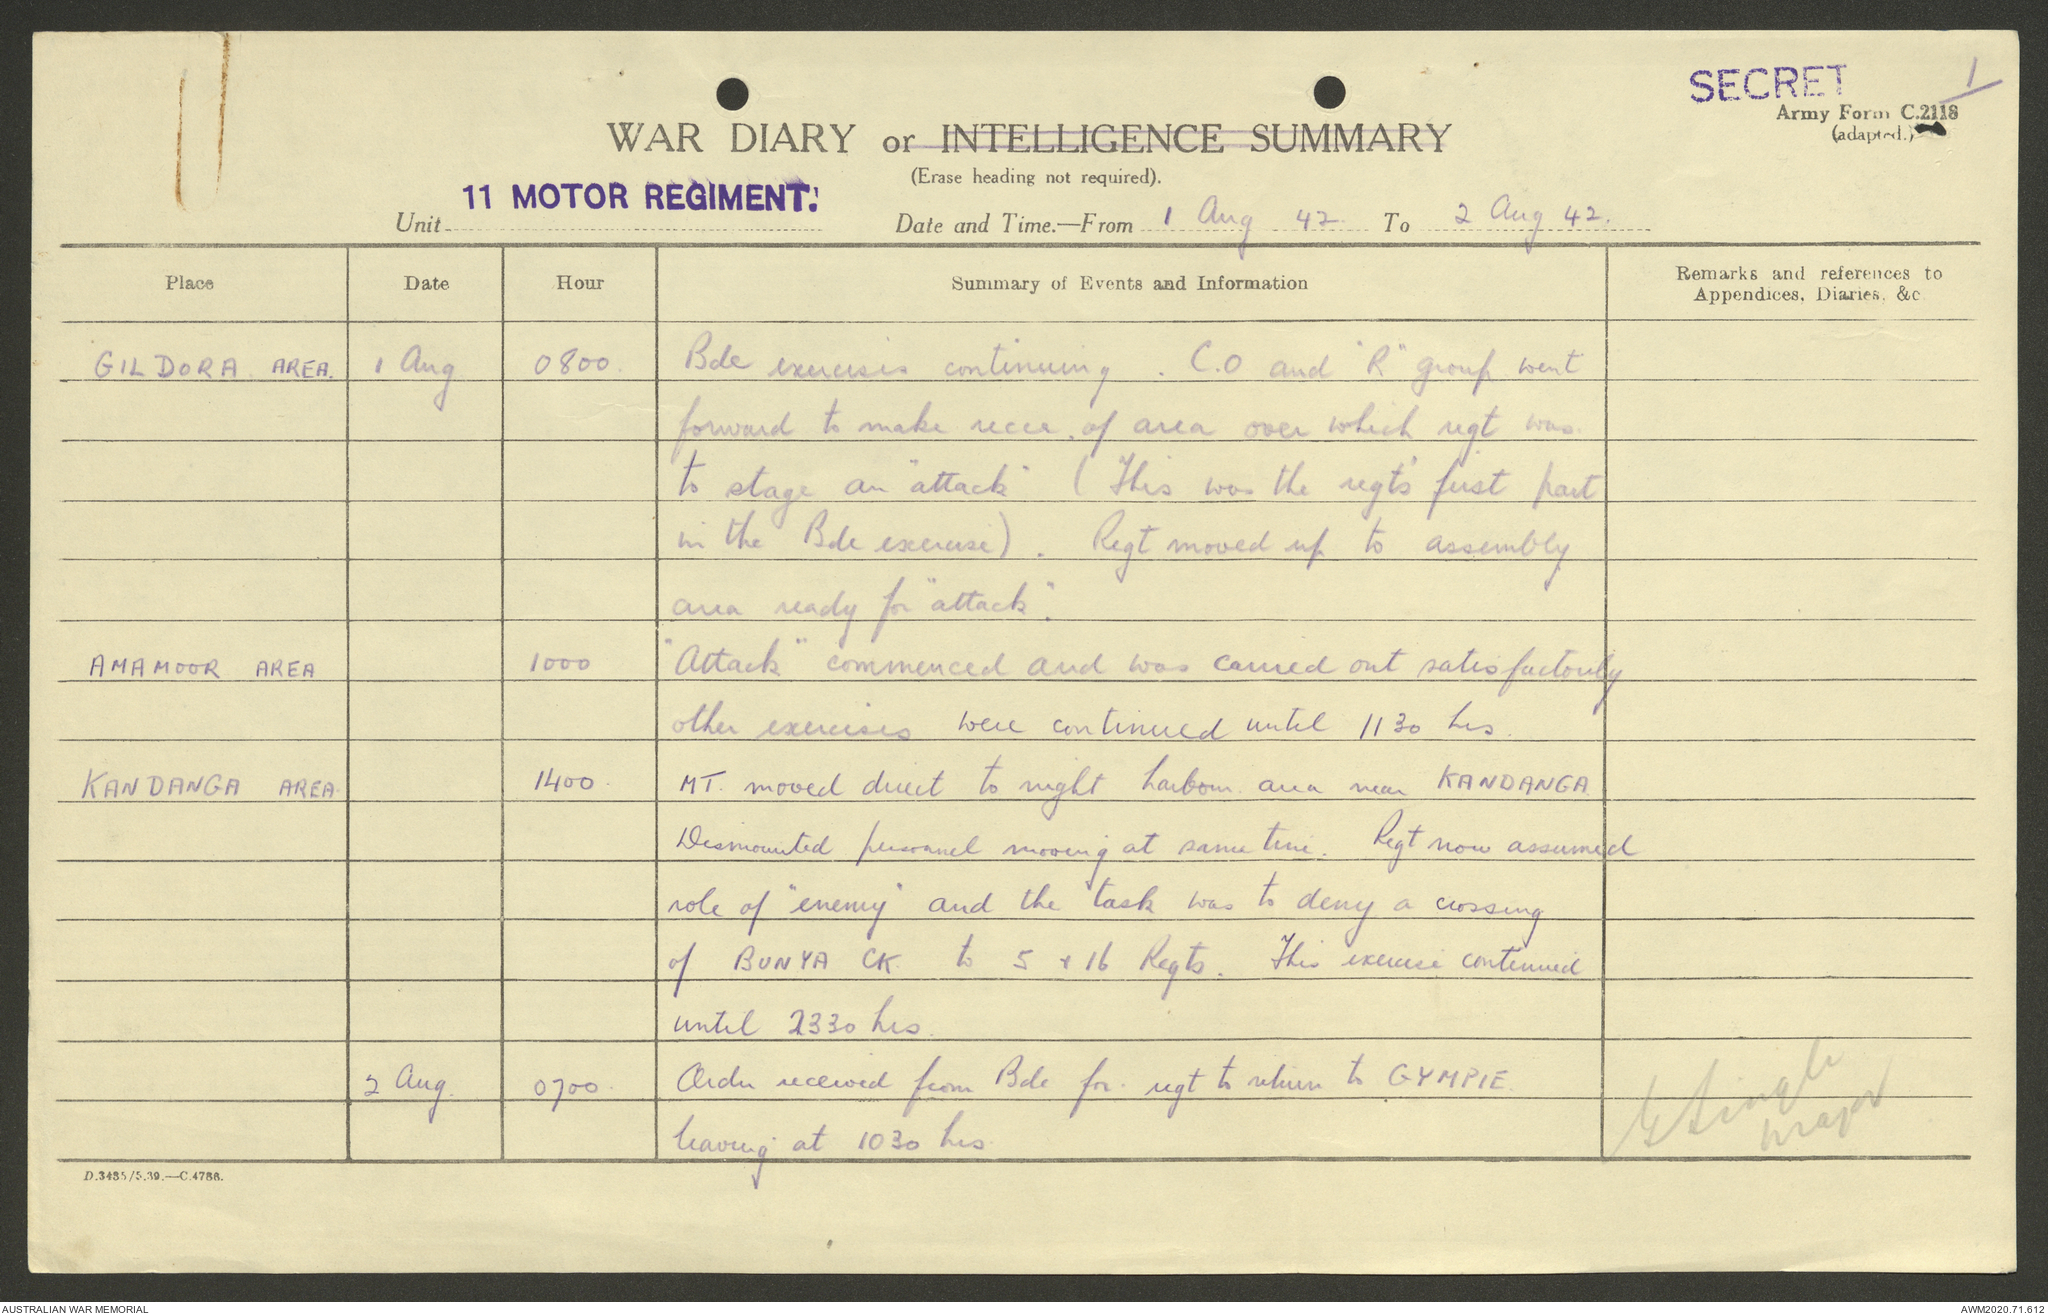 SECRET 1
Army Form C.2118
(adapted.)
WAR DIARY or INTELLIGENCE SUMMARY
(Erase heading not required).
Unit 11 MOTOR REGIMENT. Date and Time.—From 1 Aug 42. To 2 Aug 42.
Place Date Hour Summary of Events and Information Remarks and references to
Appendices, Diaries, &c.
GILDORA AREA. 1 Aug 0800. Bde exercises continuing. C.O and "R" group went
forward to make recce. of area over which regt was
to stage an "attack" (This was the regt's first part
in the Bde exercise). Regt moved up to assembly
area ready for "attack".
AMAMOOR AREA 1000 "Attack" commenced and was carried out satisfactorily
other exercises were continued until 1130 hrs.
KANDANGA AREA. 1400. MT. moved direct to night harbour area near KANDANGA
Dismounted personnel moving at same time. Regt now assumed
role of "enemy" and the task was to deny a crossing
of BUNYA CK. to 5 & 16 Regts. This exercise continued
until 2330 hrs.
2 Aug. 0700. Order received from Bde for regt to return to GYMPIE.
leaving at 1030 hrs.
Major
D.3485/5.39.—C.4786.
AUSTRALIAN WAR MEMORIAL AWM2020.71.612